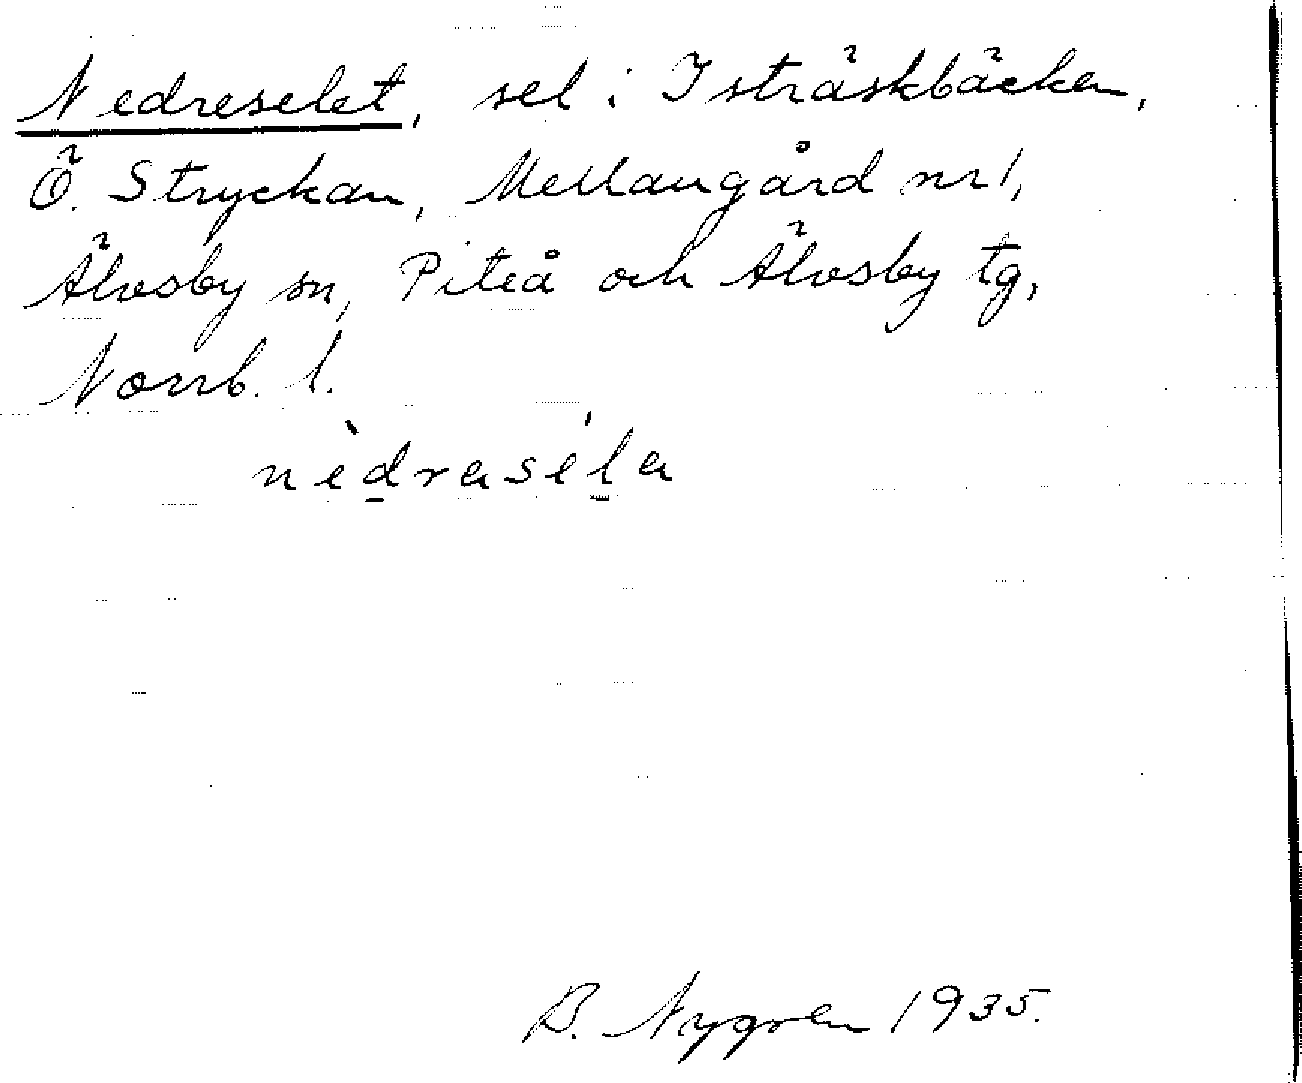 Nedreselet, sel i Isträskbäcken,
Ö. Stryckan, Mellangård nr 1,
Älvsby sn, Piteå och Älvsby tg,
Norrb. l.
nèdrasela
B. Nygren 1935.